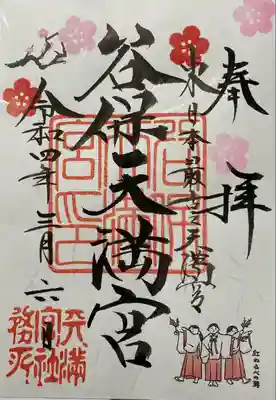 奉拝
東日本最古之天満宮
谷保天満宮
令和四年三月六日
天満宮社務所
紅わらべの舞